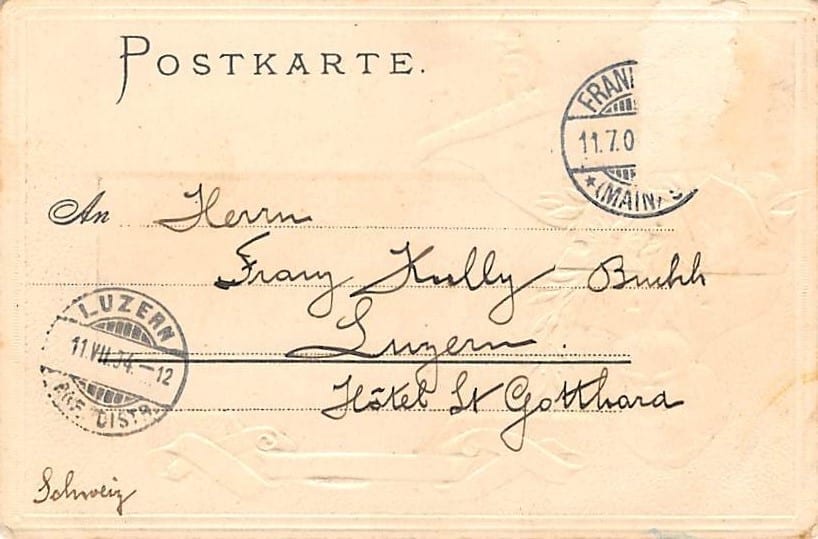 POSTKARTE.
FRAN
11.7.0
(MAIN)
An Herrn
Franz Kully Buchh
LUZERN
11.VII.04.-12
DISTR.
Luzern.
Hôtel St Gotthard
Schweiz